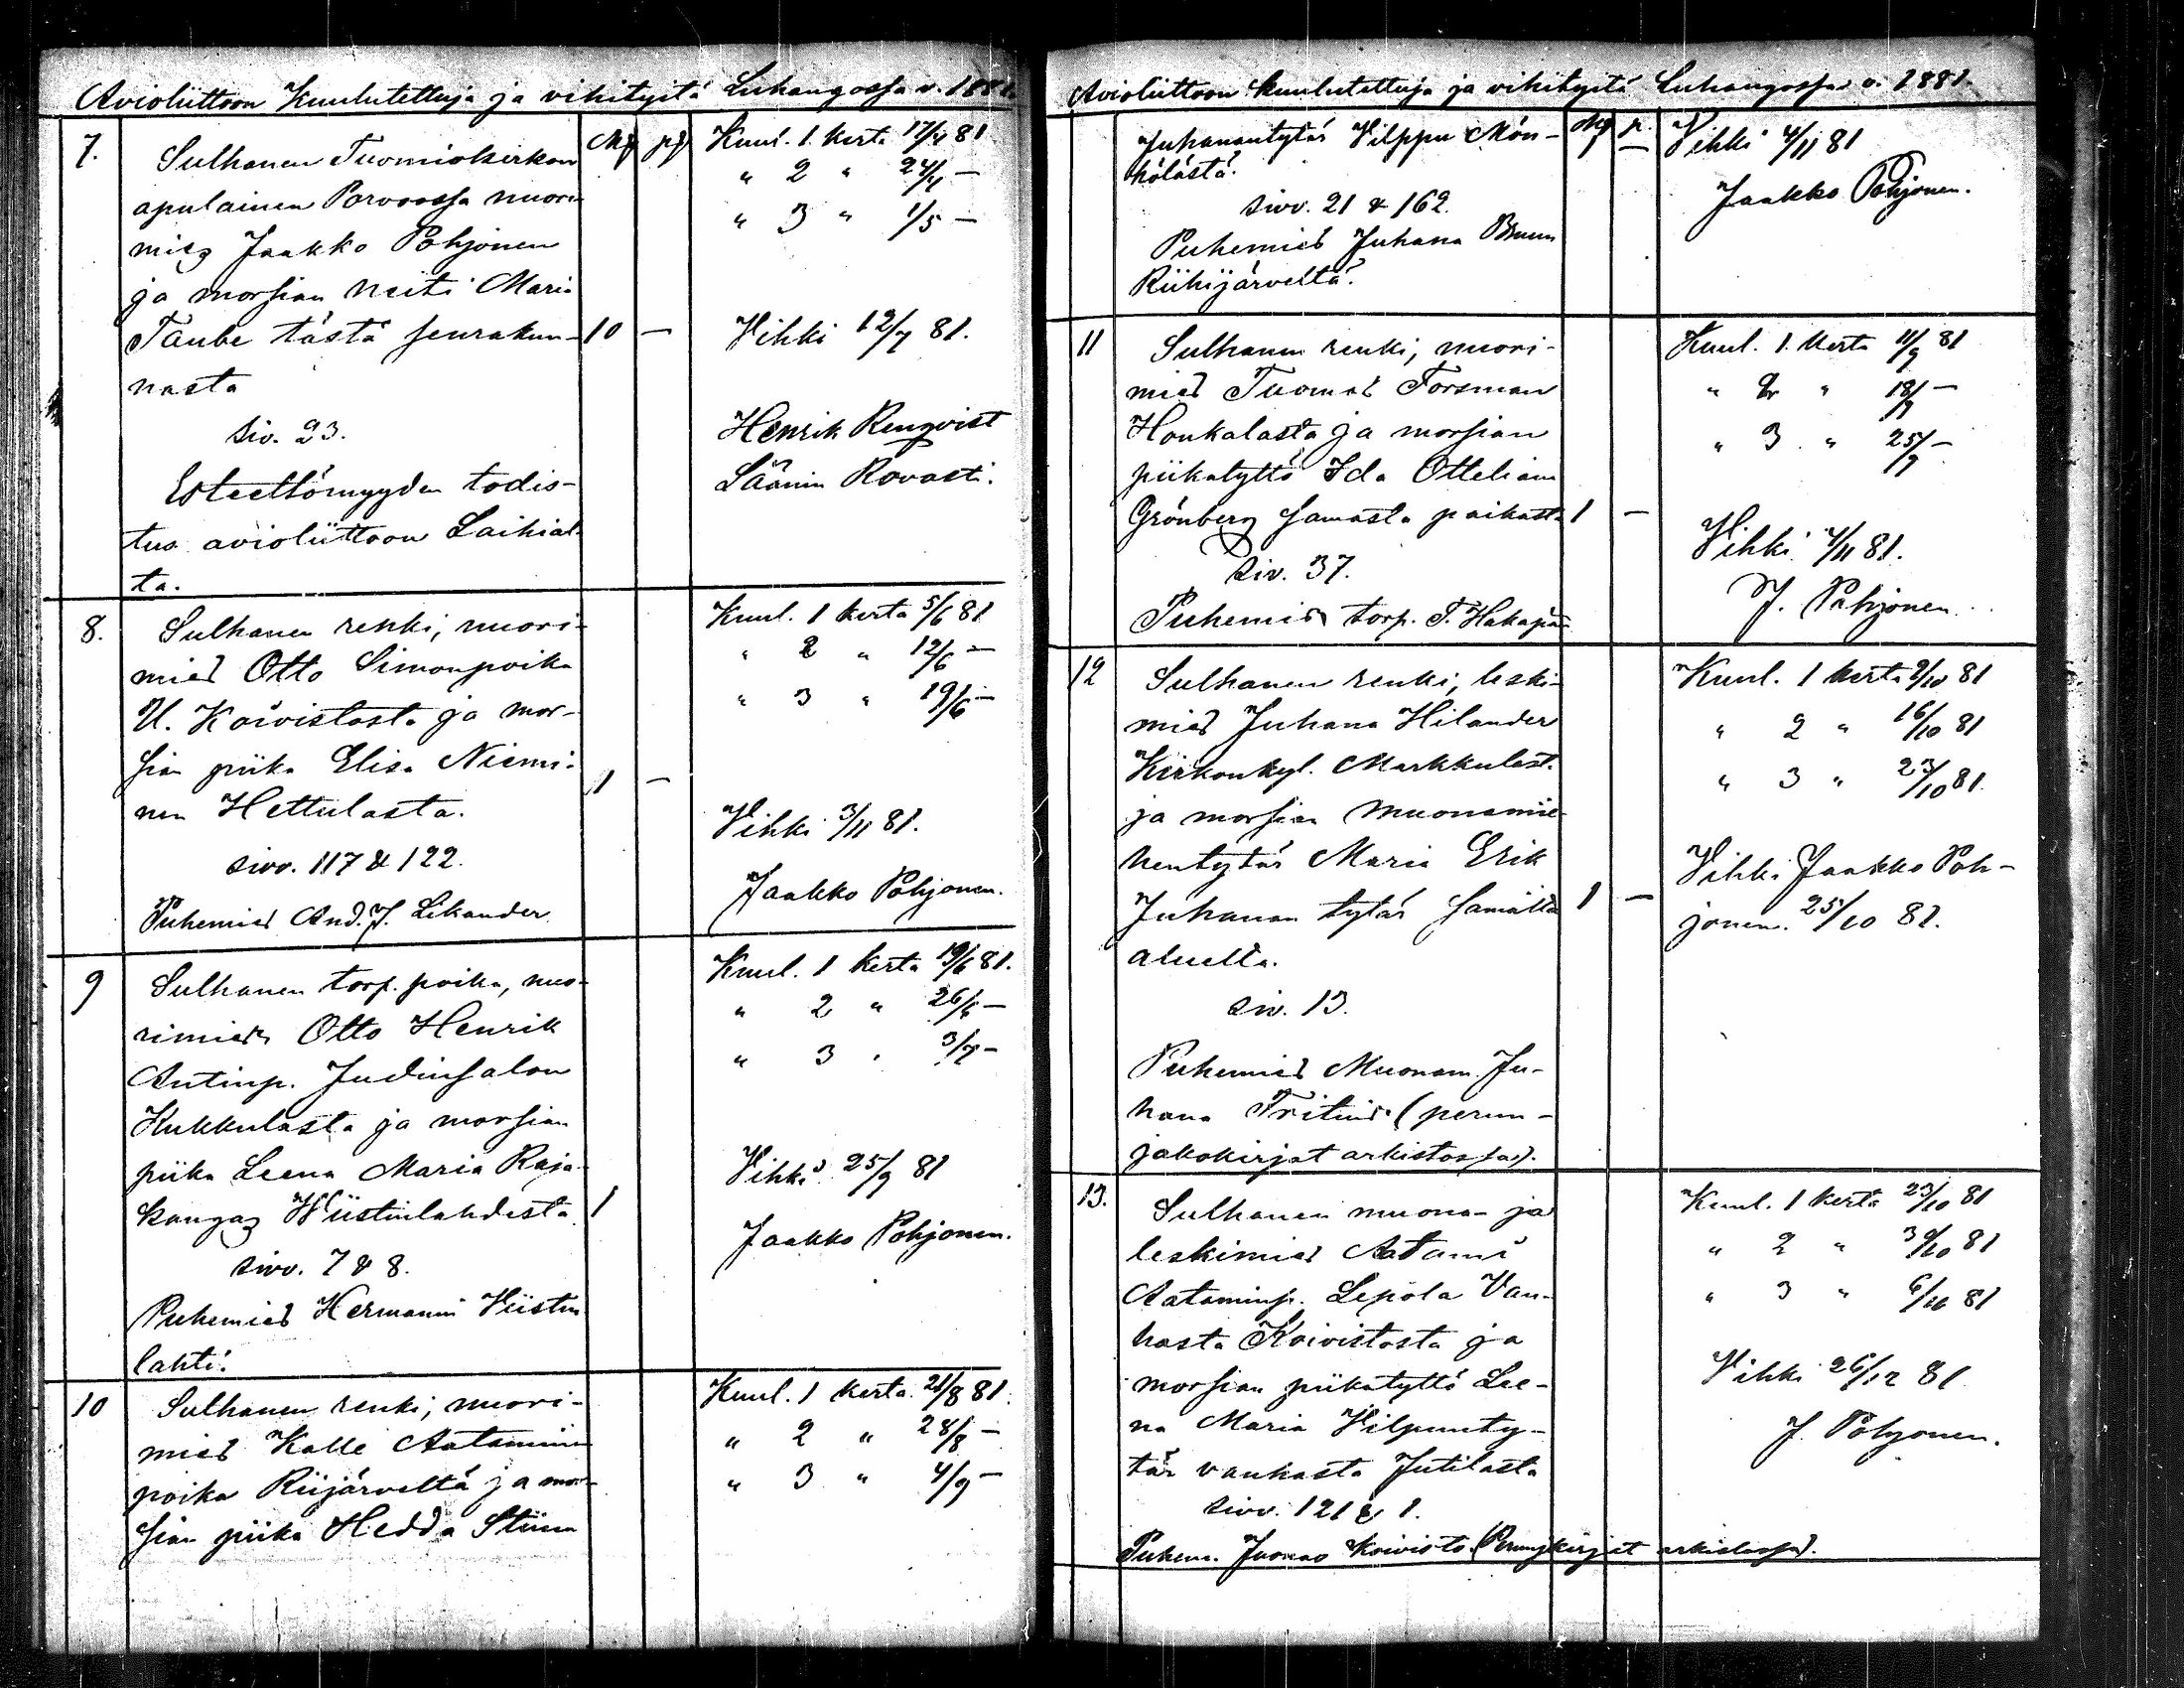 Avioliittoon Kuulutettuja ja vihityitä Luhangossa v. 1881.
7.
Sulhanen Tuomiokirkon
apulainen Porvoossa nuori
mies Jaakko Pohjonen
ja morsian neiti Maria
Taube tästä seurakun-
nasta
siv. 23.
Esteettömyyden todis-
tus avioliittoon Laihial-
ta.
Mk pi
10 —
Kuul. 1. kerta 17/4 81
" 2 " 24/4 —
" 3 " 1/5 —
Vihki 12/7 81.
Henrik Renqvist
Läänin Rovasti.
8.
Sulhanen renki, nuori-
mies Otto Simonpoika
U. Koivistosta ja mor-
sian piika Elisa Niemi-
nen Hettulasta.
sivv. 117 & 122.
Puhemies And. J. Likander
1 —
Kuul. 1 kerta 5/6 81
" 2 " 12/6 —
" 3 " 19/6 —
Vihki 3/11 81.
Jaakko Pohjonen.
9
Sulhanen torp. poika, nuo-
rimies Otto Henrik
Antinp. Judinsalon
Kukkulasta ja morsian
piika Leena Maria Raja-
kangas Wiistinlahdesta
sivv. 7 & 8.
Puhemies Hermanni Viistin
lahti.
1
Kuul. 1 kerta 19/6 81.
" 2 " 26/6 —
" 3 " 3/7 —
Vihki 25/9 81
Jaakko Pohjonen.
10
Sulhanen renki, nuori-
mies Kalle Aatamin
poika Riijärveltä ja mor-
sian piika Hedda Stiina
Kuul. 1 kerta 21/8 81.
" 2 " 28/8 —
" 3 " 4/9 —
Avioliittoon kuulutettuja ja vihityitä Luhangossa v. 1881.
Juhanantytär Vilppu Mön-
kölästä.
sivv. 21 & 162.
Puhemies Juhana
Riihijärveltä.
Mk p.
1 —
Vihki 4/11 81
Jaakko Pohjonen.
11
Sulhanen renki, nuori-
mies Tuomas Forsman
Honkalasta ja morsian
piikatyttö Ida Otteliana
Grönberg samasta paikasta
siv. 37.
Puhemies torp. T. Hakapää
1 —
Kuul. 1. kerta 11/9 81
" 2 " 18/9 —
" 3 " 25/9 —
Vihki 4/11 81.
J. Pohjonen.
12
Sulhanen renki, leski-
mies Juhana Hilander
Kirkonkyl. Markkulast.
ja morsian muonamie-
hentytär Maria Erik
Juhanan tytär samalta
aluelta.
siv. 13.
Puhemies Muonam. Ju-
hana Tritius (perun-
jakokirjat arkistossa).
1 —
Kuul. 1 kerta 9/10 81
" 2 " 16/10 81
" 3 " 23/10 81.
Vihki Jaakko Poh-
jonen. 25/10 81.
13.
Sulhanen muona- ja
leskimies Aatami
Aataminp. Lepola Van-
hasta Koivistosta ja
morsian piikatyttö Lee-
na Maria Vilpunty-
tär vanhasta Jutilasta
sivv. 121 & 1.
Puhem. Juonas Koivisto. (Perunjkirjat arkistossa).
Kuul. 1 kerta 23/10 81
" 2 " 30/10 81
" 3 " 6/11 81
Vihki 26/12 81
J. Pohjonen.